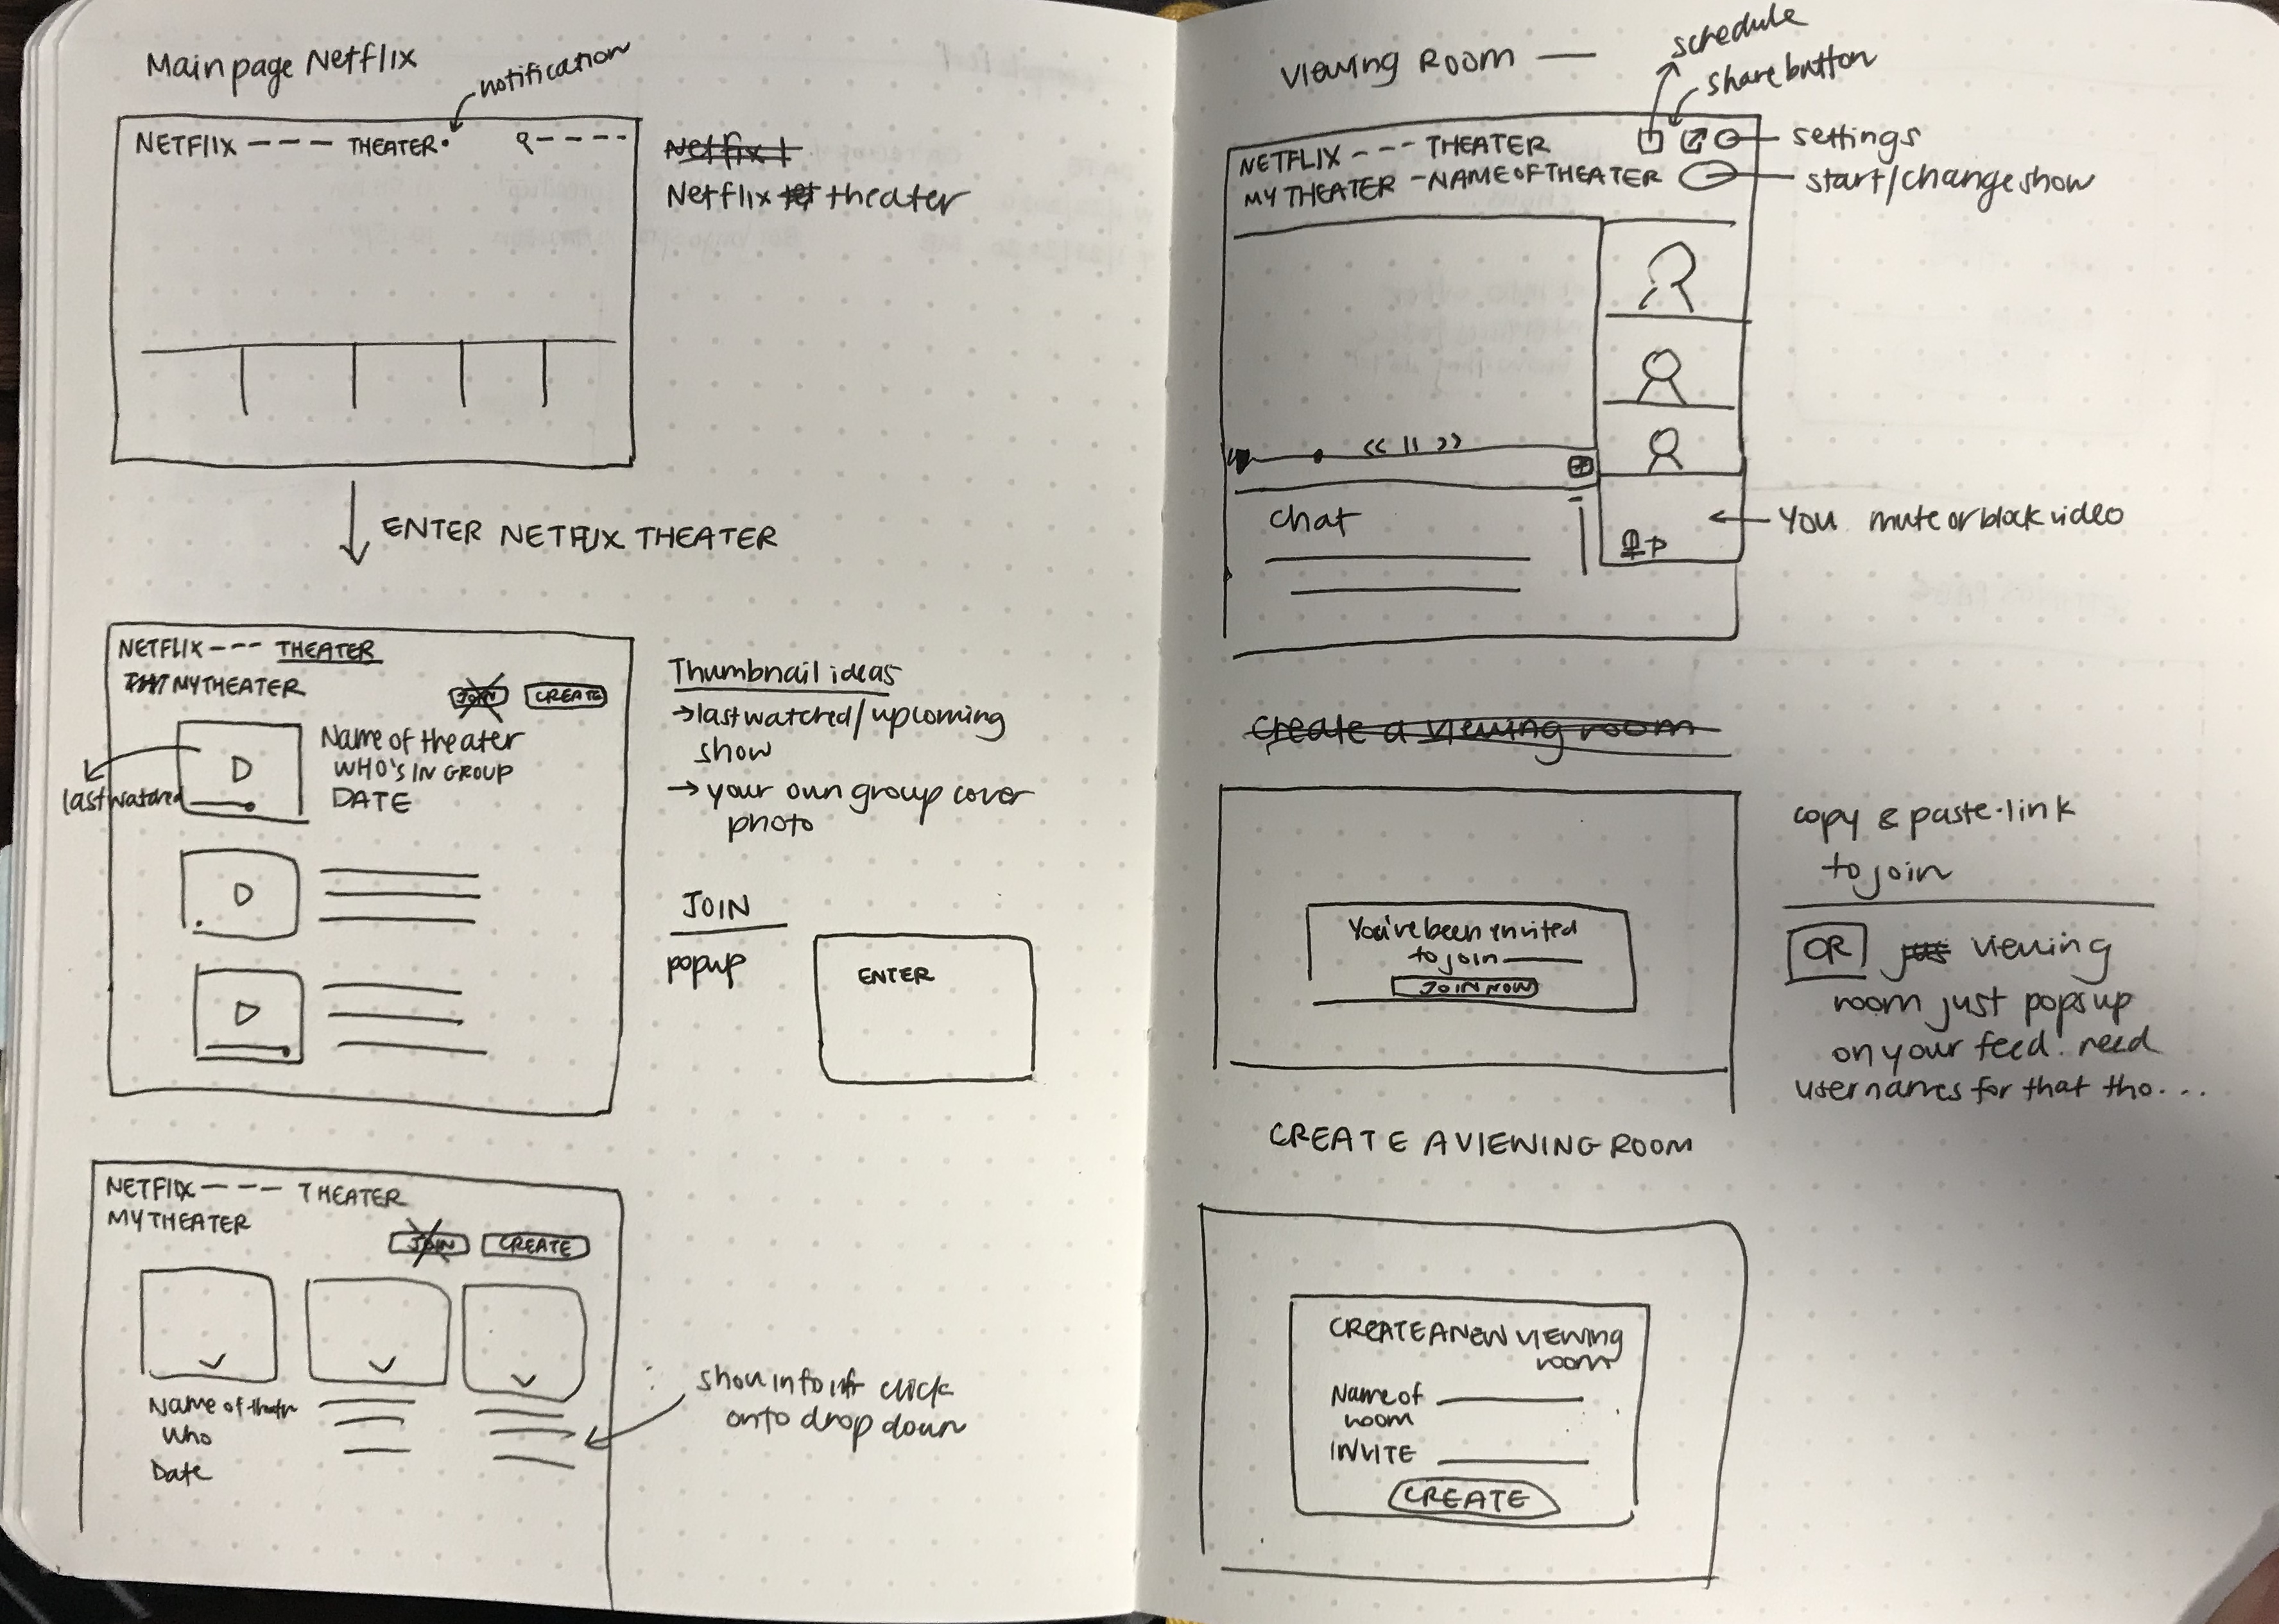 Main page Netflix
notification
NETFlIX --- THEATER•
Netflix t
Netflix theater
ENTER NETFLIX THEATER
NETFLIX --- THEATER
MY THEATER
JOIN CREATE
Name of theater
WHO'S IN GROUP
DATE
last watched
Thumbnail ideas
→ last watched/upcoming
show
→ your own group cover
photo
JOIN
popup
ENTER
NETFlIX --- THEATER
MY THEATER
JOIN CREATE
Name of theatr
Who
Date
show info if click
onto drop down
Viewing Room —
schedule
share button
settings
start/change show
NETFLIX --- THEATER
MY THEATER - NAME OF THEATER
<< || >>
chat
You mute or block video
create a viewing room
You've been invited
to join ____
JOIN NOW
copy & paste link
to join
OR viewing
room just pops up
on your feed. need
usernames for that tho....
CREATE A VIEWING ROOM
CREATE A NEW VIEWING
room
Name of ____
room
INVITE ____
CREATE